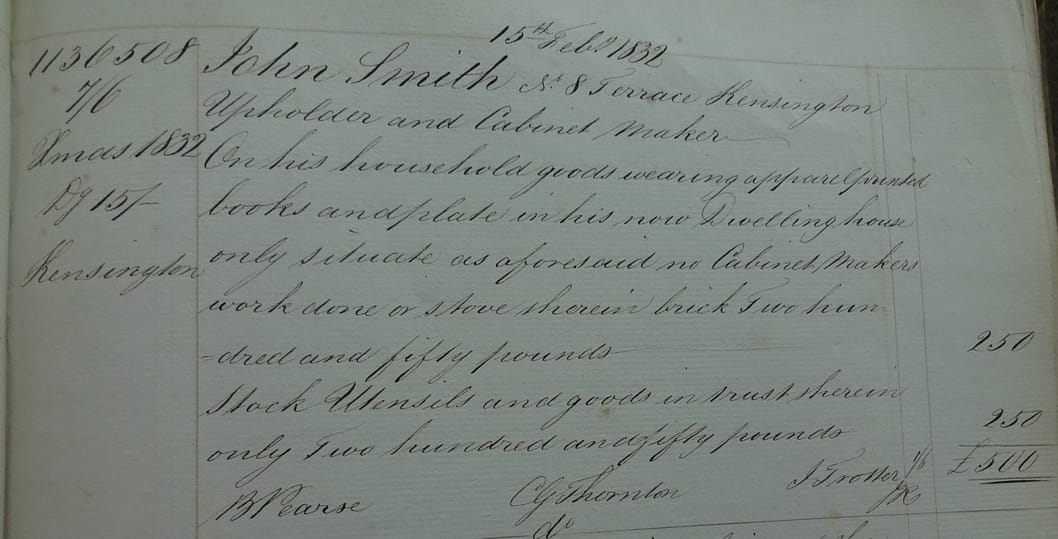 15th Feby 1832
1136508 John Smith No 8 Terrace Kensington
7/6 Upholder and Cabinet Maker
Xmas 1832 On his household goods wearing apparel printed
Dy 15/- books and plate in his now Dwelling house
Kensington only situate as aforesaid no Cabinet Makers
work done or stove therein brick Two hun
-dred and fifty pounds 250
Stock Utensils and goods in trust therein
only Two hundred and fifty pounds 250
B Pearse CG Thornton J Trotter £500
do